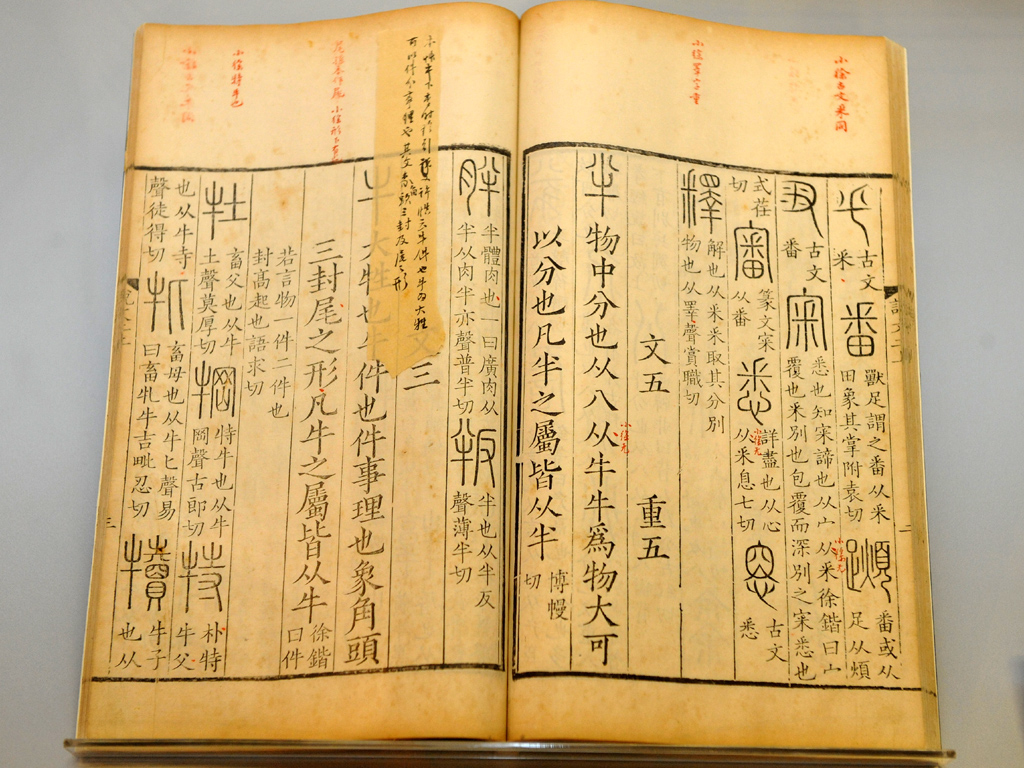 小徐古文釆同
古文釆 番 獸足謂之番从釆田象其掌附袁切 番或从足从煩
古文番 宷 悉也知宷諦也从宀从釆徐鍇曰宀覆也釆別也包覆而深別之宷悉也
式荏切 審 篆文宷从番 悉 詳盡也从心从釆息七切 古文悉
釋 解也从釆釆取其分別物也从睪聲賞職切
文五 重五
半 物中分也从八从牛牛爲物大可
以分也凡半之屬皆从半 博幔切
二
胖 半體肉也一曰廣肉从半从肉半亦聲普半切 叛 半也从半反聲薄半切
文三
牛 大牲也牛件也件事理也象角頭
三封尾之形凡牛之屬皆从牛 徐鍇曰件
若言物一件二件也封高起也語求切
小徐特牛也
牡 畜父也从牛土聲莫厚切 犅 特牛也从牛岡聲古郎切 特 朴特牛父
也从牛寺聲徒得切 牝 畜母也从牛匕聲易曰畜牝牛吉毗忍切 犢 牛子也从
三